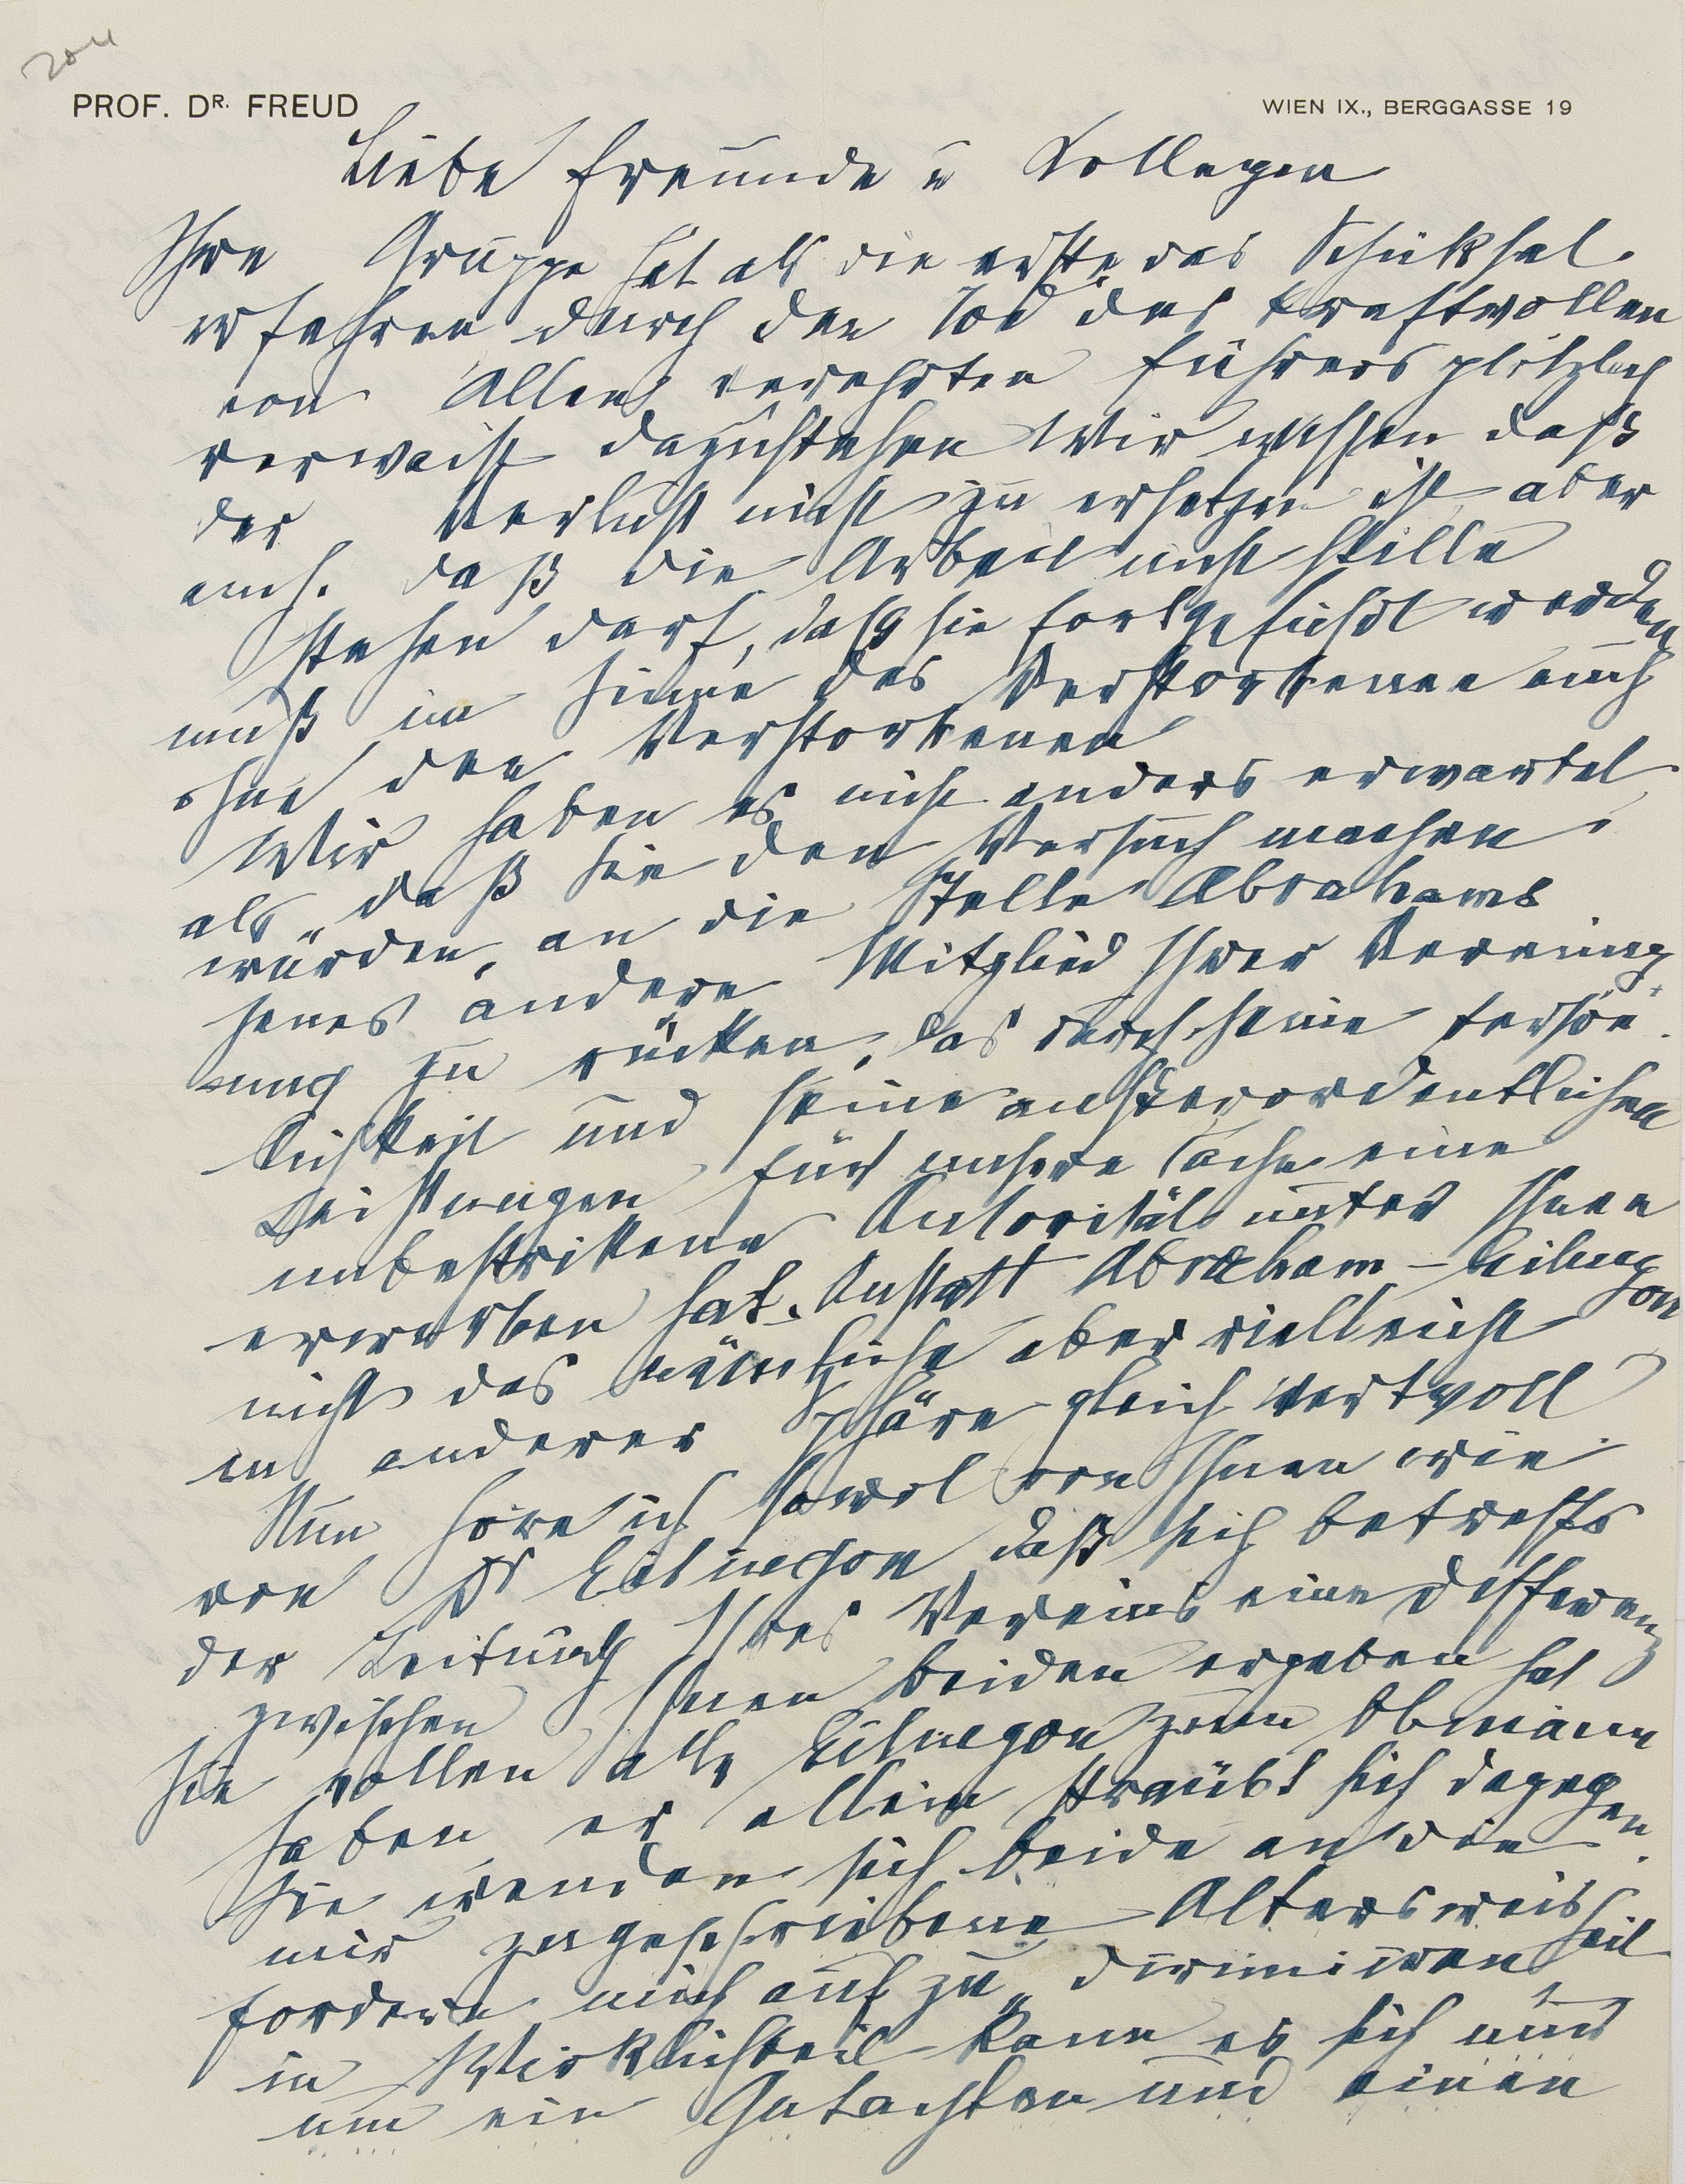 PROF. DR. FREUD
WIEN IX., BERGGASSE 19
Liebe Freunde u Kollegen
Ihre Gruppe hat als die erste das Schicksal
erfahren durch den Tod des kraftvollen
von Allen verehrten Führers plötzlich
verwaist dazustehen Wir wissen daß
der Verlust nicht zu ersetzen ist aber
auch daß die Arbeit nicht stille
stehen darf, daß sie fortgeführt werden
muß im Sinne des Verstorbenen auch
ohne den Verstorbenen
Wir haben es nicht anders erwartet
als daß Sie den Versuch machen
würden, an die Stelle Abrahams
jenes andere Mitglied Ihrer Vereinig
ung zu rücken, das durch seine Persön
lichkeit und seine außerordentlichen
Leistungen für unsere Sache eine
unbestrittene Autorität unter Ihnen
erworben hat. Anstatt Abraham – Eitingon
nicht das nämliche aber vielleicht
in anderer Sphäre gleich wertvoll
Nun höre ich sowol von Ihnen wie
von Dr Eitingon daß sich betreffs
der Leitung Ihres Vereins eine Differenz
zwischen Ihnen beiden ergeben hat
Sie wollen alle Eitingon zum Obmann
haben er allein sträubt sich dagegen.
Sie wenden sich beide an die
mir zugeschriebene Altersweisheit
fordern mich auf zu dirimiren
in Wirklichkeit kann es sich nur
um ein Gutachten und einen